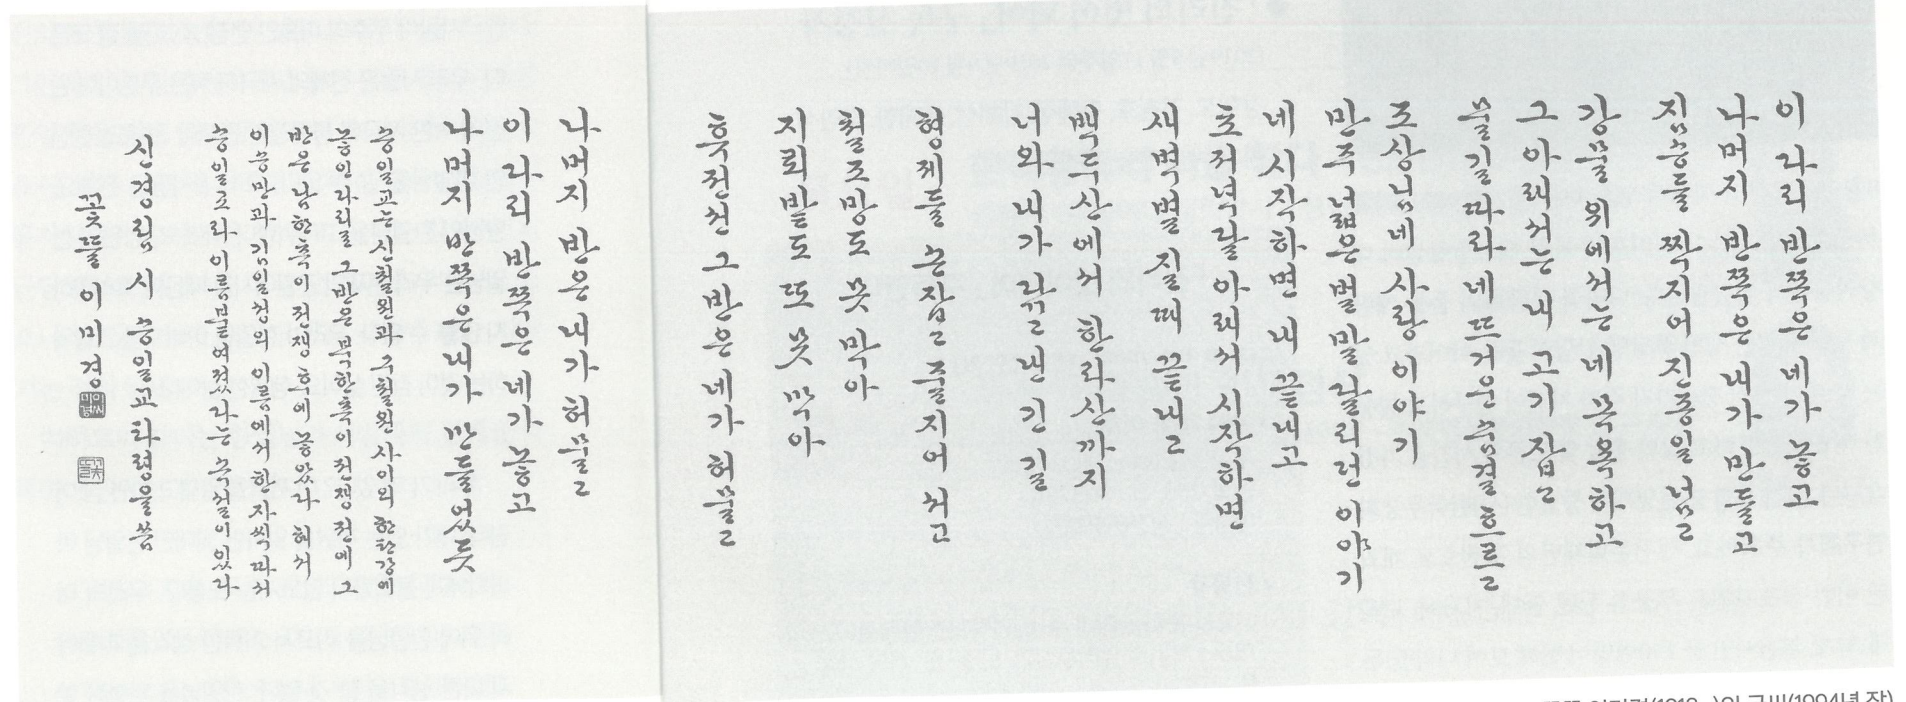 이 다리 반쪽은 네가 놓고
나머지 반쪽은 내가 만들고
짐승들 짝지어 진종일 넘고
강물 위에서는 네 목욕하고
그 아래서는 내 고기 잡고
물길 따라 네 뜨거운 숨결 흐르고
조상님네 사랑 이야기
만주 넓은 벌 말 달리던 이야기
네 시작하면 내 끝내고
초저녁달 아래서 시작하면
새벽별 질 때 끝내고
백두산에서 한라산까지
너와 내가 닦고 낸 긴 길
형제들 손잡고 줄지어 서고
철조망도 못 막아
지뢰밭도 또 못 막아
휴전선 그 반은 네가 허물고
나머지 반은 내가 허물고
이 다리 반쪽은 네가 놓고
나머지 반쪽은 내가 만들었듯
승일교는 신철원과 구철원 사이의 한탄강에
놓인 다리로 그 반은 북한측이 전쟁 전에 그
반은 남한측이 전쟁 후에 놓았다 해서
이승만과 김일성의 이름에서 한자씩 따서
승일교라 이름붙여졌다는 속설이 있다
신경림 시 승일교 타령을 씀
꽃뜰 이미경